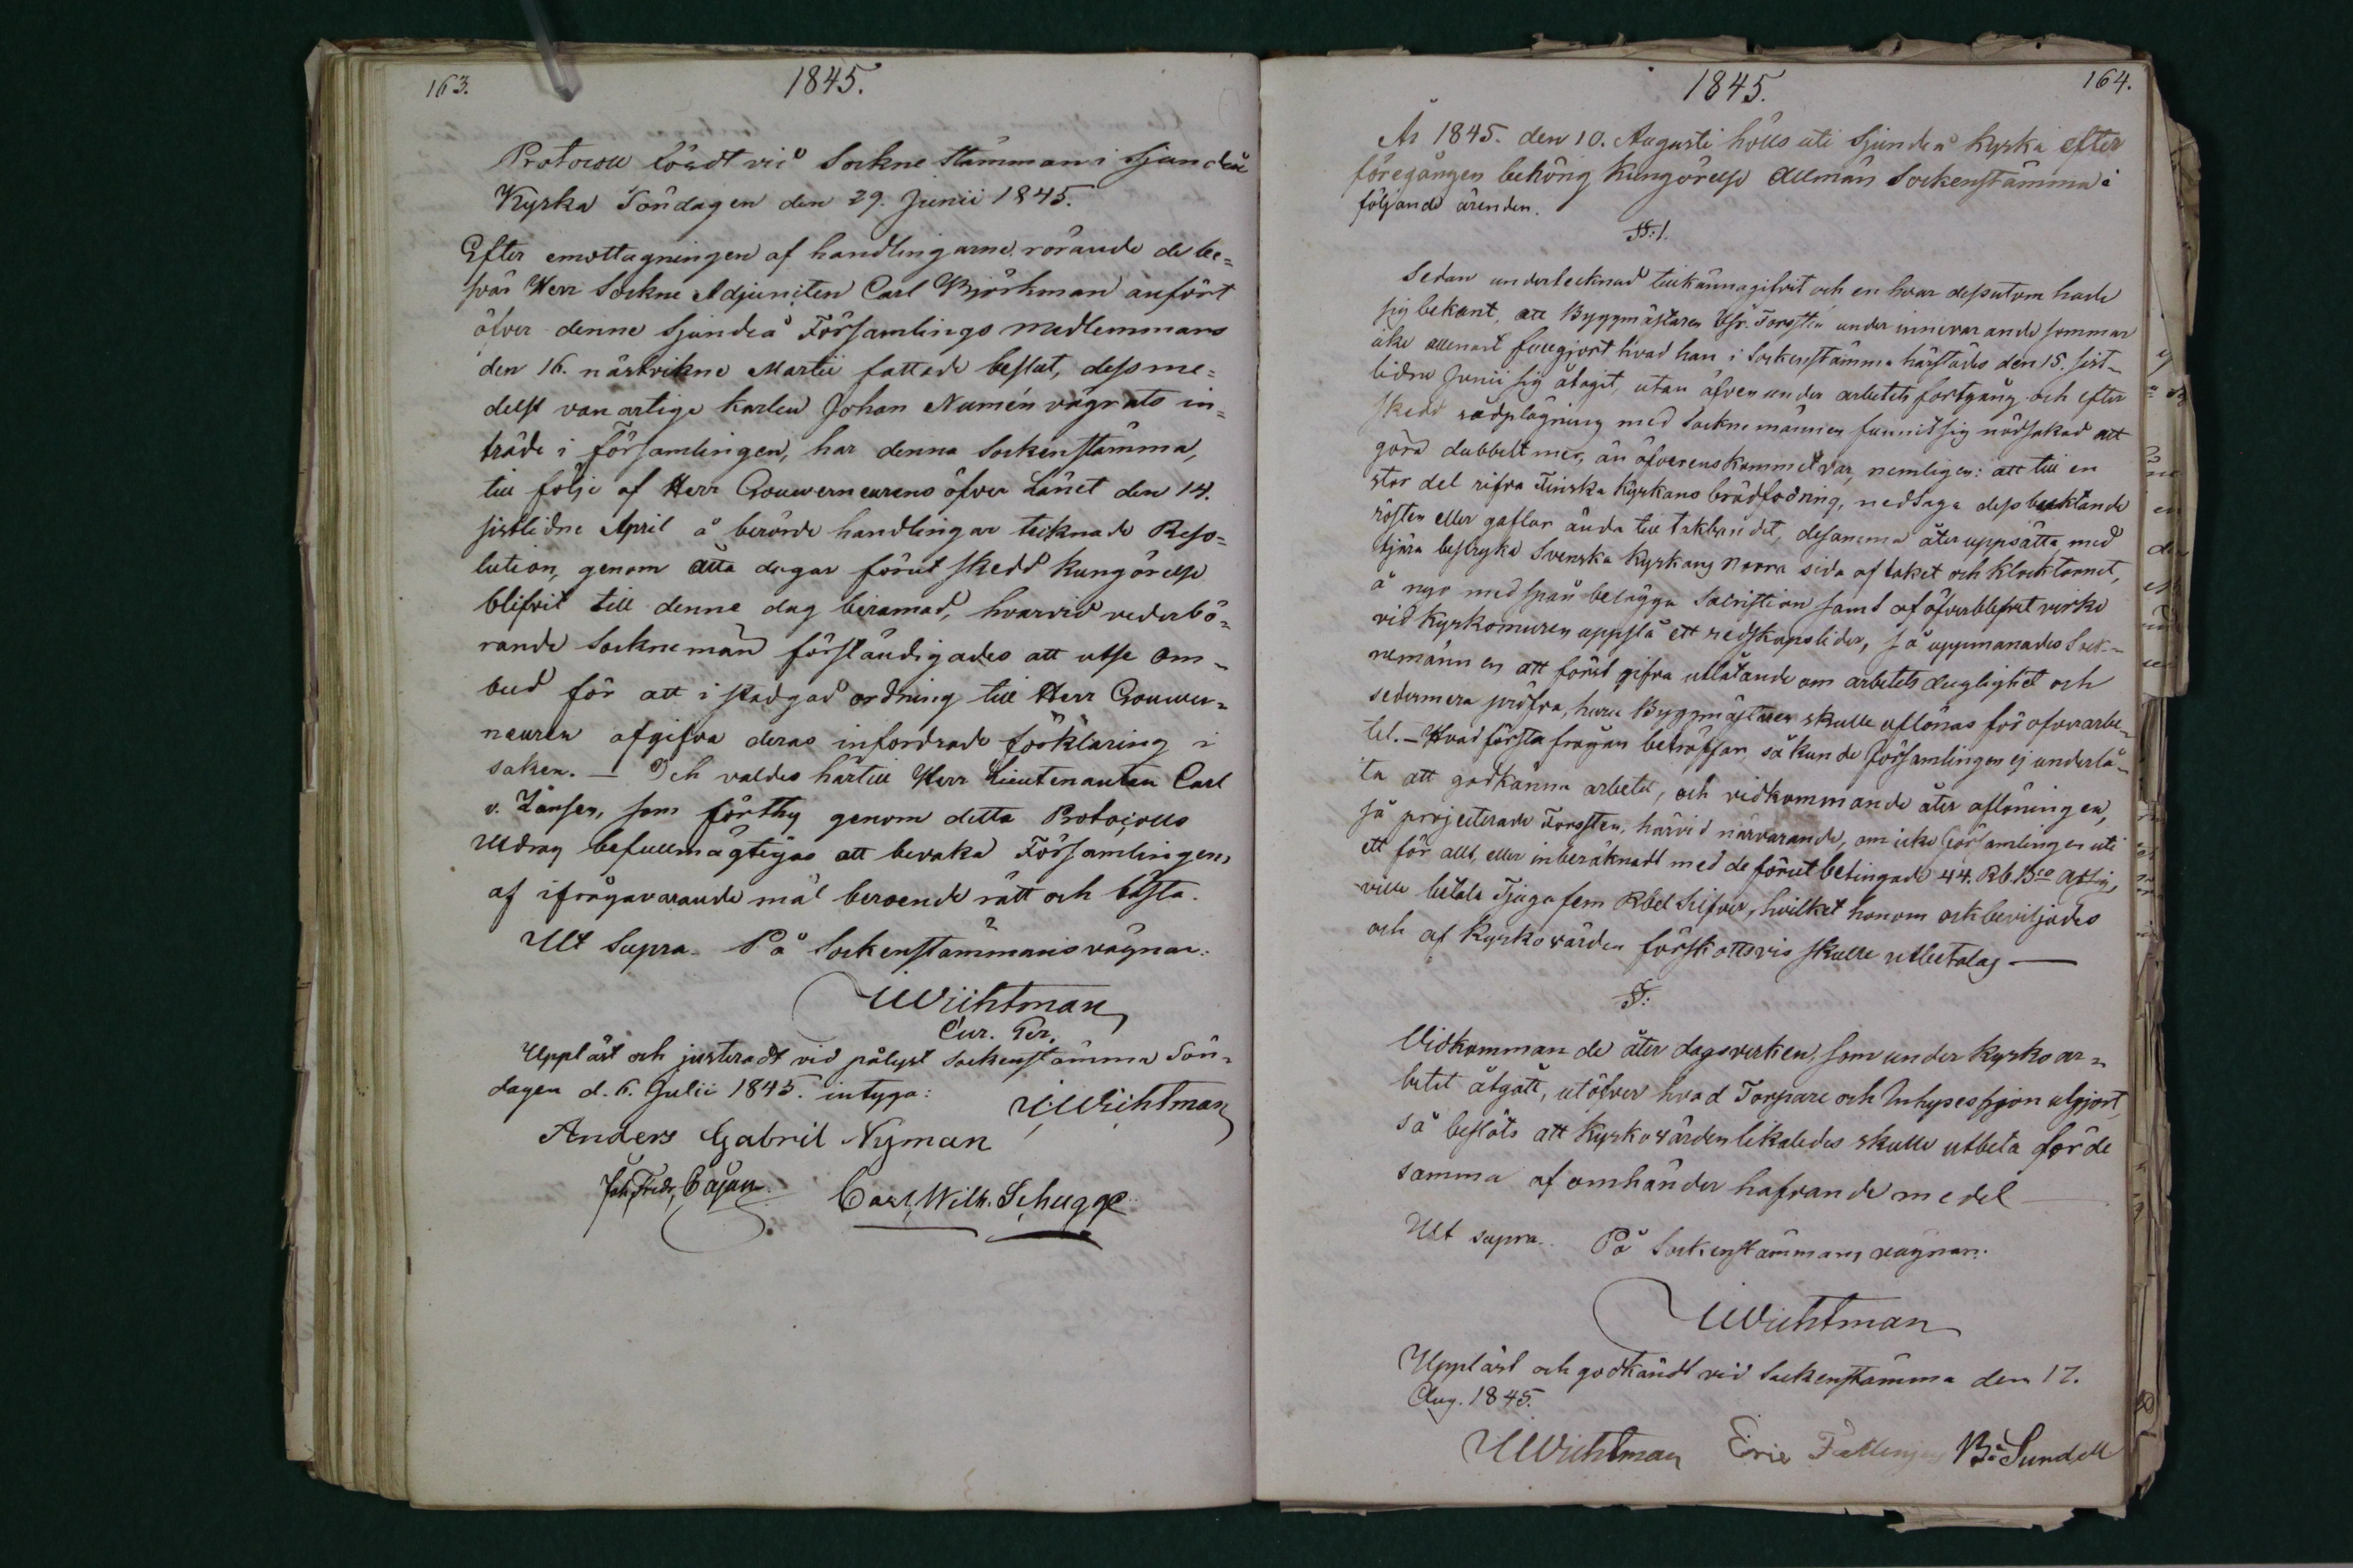 163.
1845.
Protocoll fördt vid Sockne stämman i Sjundeå
Kyrka Söndagen den 29. Junii 1845.
Efter emottagningen af handlingarne rörande de be=
svär Herr Sockne Adjuncten Carl Björkman anfört
öfver denne Sjundeå Församlings medlemmars
den 16. nästvikne Martii fattade beslut, dessme=
delst vanartige karlen Johan Numén vägrats in=
träde i Församlingen, har denna Sockenstämma,
till följe af Herr Gouverneurens öfver Länet den 14.
sistlidne April å berörde handlingar tecknade Reso=
lution, genom åtta dagar förut skedd kungörelse
blifvit till denne dag beramad, hvarvid vederbö=
rande Socknemän förständigades att utse Om=
bud för att i stadgad ordning till Herr Gouver=
neuren afgifva deras infordrade förklaring i
saken. — Och valdes härtill Herr Lieutenanten Carl
v. Zansen, som förthy genom detta Protocolls
Utdrag befullmägtigas att bevaka Församlingens
af ifrågavarande mål beroende rätt och bästa.
Ut Supra. På Sockenstämmans vägnar:
Wichtman
Cur. Ger.
Uppläst och justeradt vid pålyst sockenstämma Sön=
dagen d. 6. Julii 1845. intyga:
Wichtman
Anders Gabril Nyman
Joh. Fredr. Cajan
Carl. Wilh. Schugge
1845.
164.
År 1845. den 10. Augusti hölls uti Sjundeå Kyrka efter
föregången behörig kungörelse Allmän Sockenstämma i
följande ärenden.
§. 1.
Sedan undertecknad tillkännagifvit och en hvar dessutom hade
sig bekant, att Byggmästaren Forstén under innevarande sommar
icke allenast fullgjort hvad han i Sockenstämma härstädes den 15. sist=
lidne Junii sig åtagit, utan äfven under arbetets fortgång och efter
skedd rådplägning med Socknemännen funnit sig nödsakad att
göra dubbelt mer, än öfverenskommet var, nemligen: att till en
stor del rifva Finska Kyrkans brädfodring, nedtaga dess
rösten eller gaflar ända till takbandet, desamma åter uppsätta med
tjära bestryka Svenska Kyrkans Norra sida af taket och klocktornet,
å nyo med spån belägga Sacristian samt af öfverblefvet virke
vid Kyrkomuren uppslå ett redskapslider, så uppmanades Sock=
nemännen att förut gifva utlåtande om arbetets duglighet och
sedermera pröfva, huru Byggmästaren skulle aflönas för öfverarbe=
tet. — Hvad första frågan beträffar, så kunde Församlingen ej underlå=
ta att godkänna arbetet, och vidkommande åter aflöningen,
så projecterade Forsten, härvid närvarande, om icke Församlingen uti
ett för allt, eller inberäknadt med de förut betingade 44. Rb. Bco
ville betala Tjugufem Rbel Silfver, hvilket honom ock beviljades
och af Kyrkovärden förskottsvis skulle utbetalas —
§:
Vidkommande åter dagsverken, som under Kyrkoar=
betet åtgått, utöfver hvad Torpare och Inhyseshjon utgjort,
så beslöts att Kyrkovärden likaledes skulle utbeta för de
samma af omhänder hafvande medel —
Ut supra. På Sockenstämmans vägnar:
Wichtman
Uppläst och godkändt vid Sockenstämma den 17.
Aug. 1845.
Wichtman Eric B: Sundell